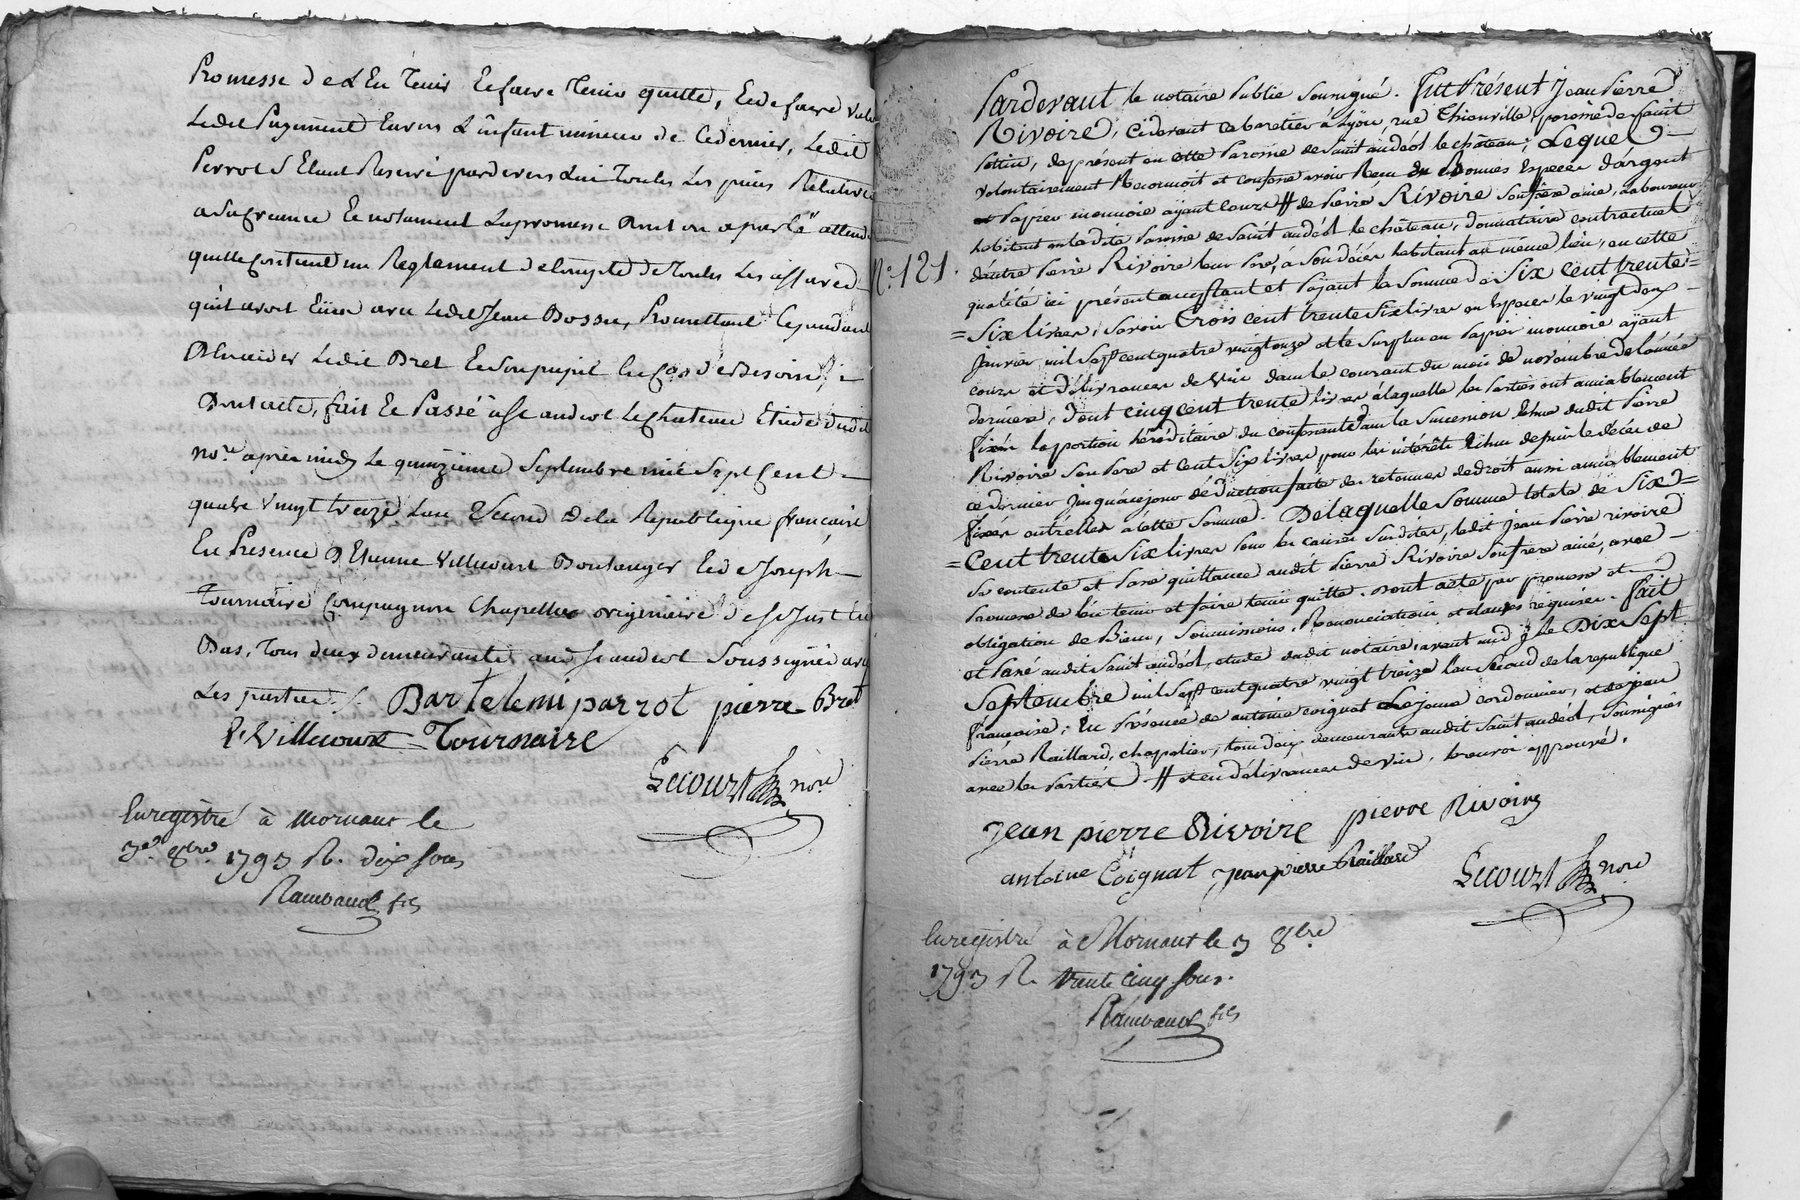 Promesse de L'En Tenir Et faire Tenir quitte, Et de faire valoir
Ledit Payement Envers L'infant mineur de Ce dernier, Ledit
Perrot S'Etant Reservé pardevers Lui Toutes Les pieces Relatives
a Sa Creance Et notament La promesse dont on a parlé attendu
quelle Contient un Reglement de Compte de Toutes Les affaires
qu'il avoit Eües avec Ledit Jean Bossu, Promettant Cependant
D'En aider Ledit Bret Et Son pupil En Cas de Besoin
Dont acte, fait Et Passé à St andeol Le Chateau Etude dudit
nore. après midy Le quinzieme Septembre mil Sept Cent
quatre vingt treize L'an Second de la Republique francaise
En Presence D'Etienne Villecourt Boulanger Et de Joseph
Tournaire Compagnon Chapellier originaire de St Just En
Bas, Tous deux demeurants aud. St andeol Soussignés avec
Les parties /.
Bartelemi parrot pierre Bret
E. Villecourt Tournaire
Lecourt nore
Enregistré à Mornant le
3e. 8bre. 1793 R. dix sous
Rambaud fils
Pardevant le notaire Public Soussigné. Fut Présent Jean Pierre
Rivoire, cidevant cabaretier à Lyon, rue Thionville, paroisse de Saint
Pottin, de présent en cette Paroisse de Saint andéol le château; Lequel
volontairement Reconnoit et confesse avoir Reçu en Bonnes Especes d'argent
et Papier monnoie ayant cours # de Pierre Rivoire Son frere ainé, Laboureur
habitant en la dite Paroisse de Saint andéol le château, donnataire contractuel
N°. 121.
d'autre Pierre Rivoire leur Pere, à Son décès habitant au même lieu, en cette
qualité ici présent acceptant et Payant la Somme de Six cent trente=
=Six livres, Savoir Trois cent trente Six livres en Especes le vingt deux
Janvier mil Sept cent quatre vingt onze et le Surplus en Papier monnoie ayant
cours et Délivrances de vin dans le courant du mois de novembre de l'année
derniere, dont cinq cent trente livres à laquelle les Parties ont amiablement
fixée la portion héréditaire du confessant dans la Succession Echue dudit Pierre
Rivoire Son Pere et cent Six livres pour les intérêts Echus depuis le décès de
ce dernier jusqu'à ce jour déduction faite des retenues de droit aussi amiablement
fixées entr'elles à cette Somme. De laquelle Somme totale de Six=
=Cent trente Six livres pour les causes Susdites, ledit Jean Pierre rivoire
Se contente et Passe quittance audit Pierre Rivoire Son frere ainé, avec
Promesse de l'en tenir et faire tenir quitte. Dont acte par promesse et
obligation de Biens, Soumissions, Renonciations et clauses requises. Fait
et Passé audit Saint andéol, etude dudit notaire, avant midy le Dix Sept
Septembre mil Sept cent quatre vingt treize l'an Second de la republique
françoise; En Présence de antoine coignat Le jeune cordonnier, et de jean
Pierre Raillard, chapelier, tous deux demeurants audit Saint andéol, Soussignés
avec les Parties # et en délivrances de vin, le renvoi approuvé.
Jean pierre Rivoire pierre Rivoire
antoine Coignat Jean pierre Raillard
Lecourt nore
Enregistré à Mornant le 3 8bre
1793 R. trente cinq sous.
Rambaud fils